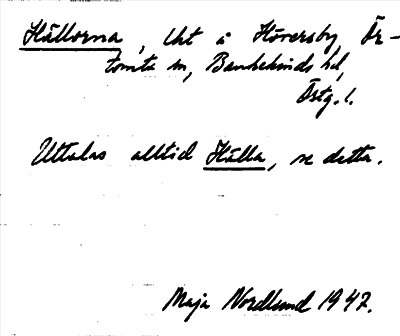 Hällorna, lht å Höversby, Ör-
tomta sn, Bankekinds hd,
Östg. l.
Uttalas alltid Hälla, se detta.
Maja Nordlund 1947.